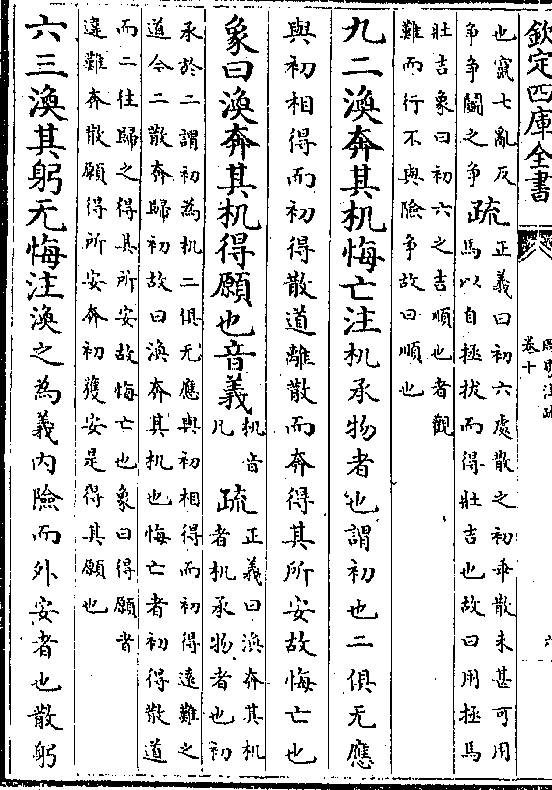 欽定四庫全書
卷十
也竄七亂反
爭爭鬬之爭疏正義曰初六處散之初乖散未甚可用
馬以自拯拔而得壯吉也故曰用拯馬
壯吉象曰初六之吉順也者觀
難而行不與險爭故曰順也
九二渙奔其机悔亡注机承物者也謂初也二俱无應
與初相得而初得散道離散而奔得其所安故悔亡也
象曰渙奔其机得願也音義机音
几
疏正義曰渙奔其机
者机承物者也初
承於二謂初為机二俱无應與初相得而初得遠難之
道今二散奔歸初故曰渙奔其机也悔亡者初得散道
而二往歸之得其所安故悔亡也象曰得願者
違難奔散願得所安奔初獲安是得其願也
六三渙其躬无悔注渙之為義內險而外安者也散躬